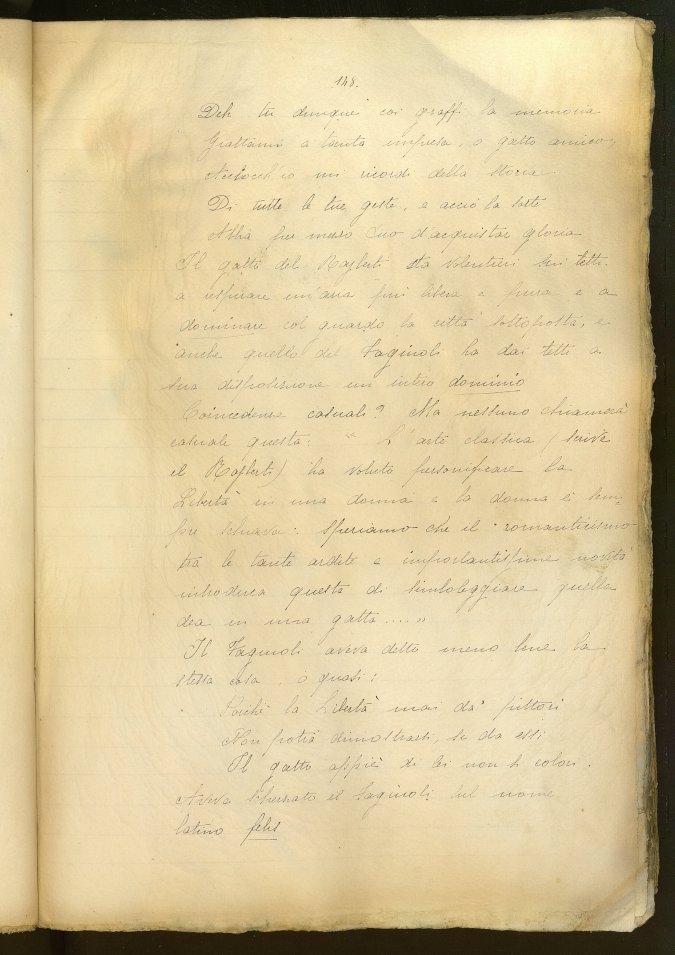 148.
Deh tu dunque coi graffi la memoria
Grattami a tanta impresa, o gatto amico,
Acciocch'io mi ricordi della storia
Di tutte le tue geste, e acciò la sorte
Abbia per mezzo tuo d'acquistar gloria
Il gatto del Rajberti sta volentieri sui tetti
a respirare un'aria più libera e pura e a
dominare col guardo la città sottoposta, e
anche quello del Fagiuoli ha dai tetti a
sua disposizione un intero dominio
Coincidenze casuali? Ma nessuno chiamerà
casuale questa: "L'arte classica (scrive
il Rajberti) ha voluto personificare la
Libertà in una donna e la donna è sem-
pre schiava: speriamo che il romanticismo
tra le tante ardite e importantissime novità
introduca questa di simboleggiare quella
dea in una gatta...."
Il Fagiuoli aveva detto meno bene la
stessa cosa, o quasi:
Poichè la Libertà mai da' pittori
Non potrà dimostrarsi, se da essi
Il gatto appiè di lei non si colori.
Aveva scherzato il Fagiuoli sul nome
latino felis